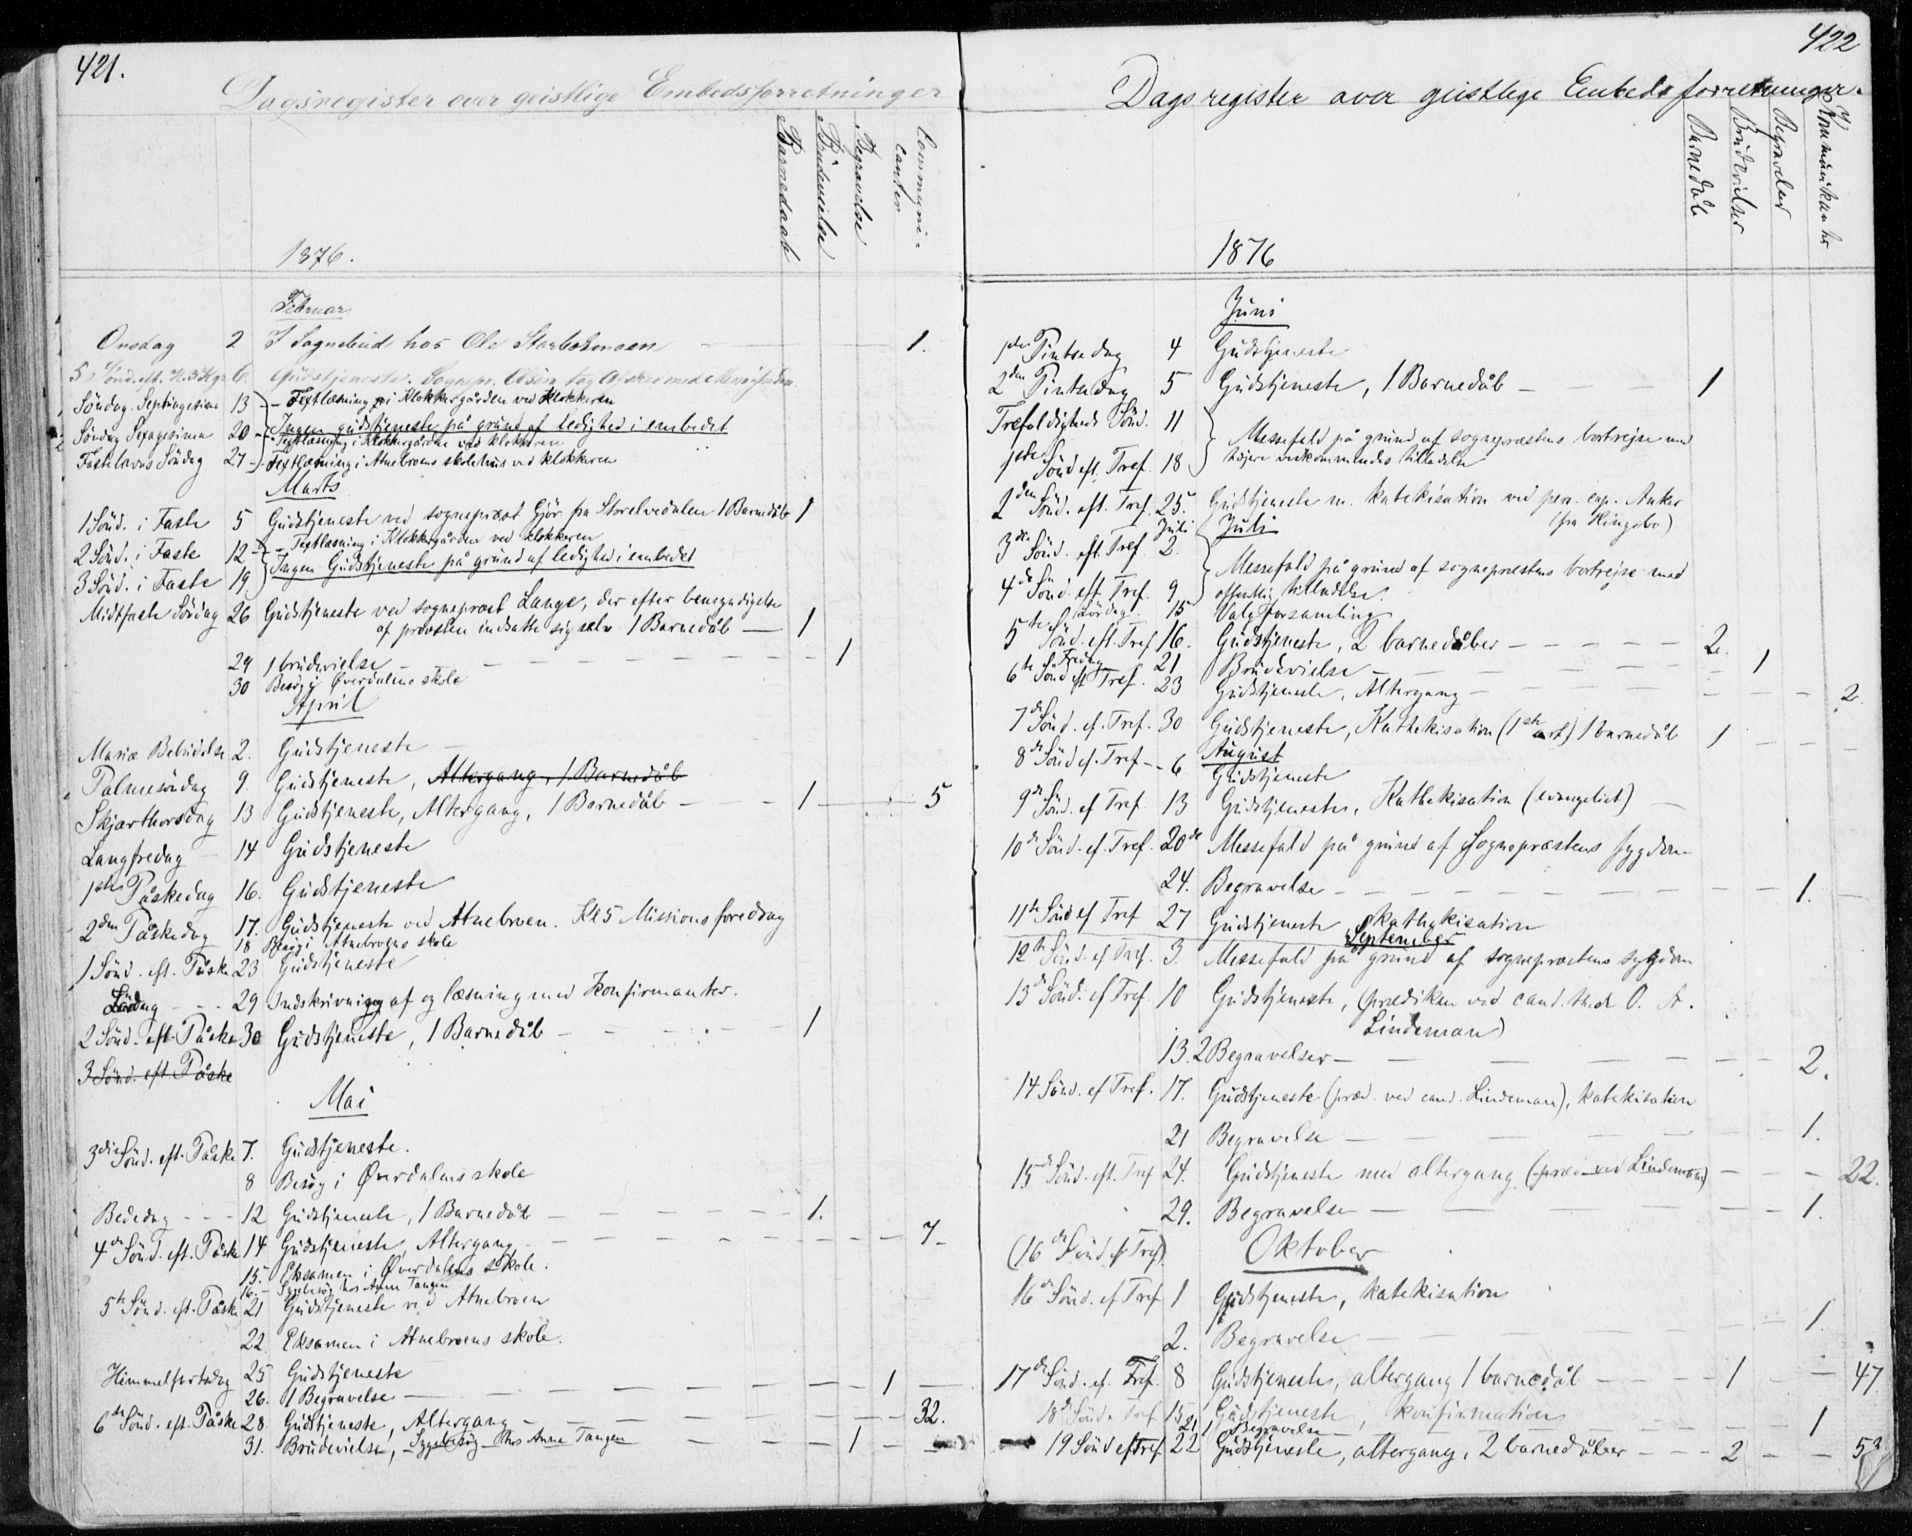 421.
Dagsregister over geistlige Embedsforretninger
Barnedaab
Brudevielse
Begravelse
Communicanter
1876.
Februar
Onsdag 2 I Sognebud hos Ole Storbekmoen 1.
5 Sönd. eft. H. 3 Kgr. 6. Gudstjeneste. Sognepr. Olsen tog Afsked med Menigheden.
Söndag Septuagesima 13 - Textlæsning i Klokkergården ved Klokkeren
Ingen gudstjeneste på grund af ledighed i embedet
Söndag Sexagesima 20 - Textlæsning i Klokkergården ved klokkeren
Fastelavns Söndag 27 - Textlæsning i Atnebroens skolehus ved klokkeren
Marts
1 Sönd. i Faste 5 Gudstjeneste ved sogneprest Gjör fra Storelvedalen 1 Barnedåb 1
2 Sönd. i Faste 12 - Textlæsning i Klokkergården ved klokkeren
3 Sönd. i Faste 19 Ingen Gudstjeneste på grund af ledighed i embedet
Midtfaste Söndag 26 Gudstjeneste ved sogneprest Lange, der efter bemyndigelse
af provsten indsatte sig selv 1 Barnedåb — 1
29 1 brudevielse - 1
30 Besög i Øverdalens skole
April
Mariæ Bebudelse 2. Gudstjeneste
Palmesöndag 9. Gudstjeneste, Altergang, 1 Barnedåb
Skjærthorsdag 13 Gudstjeneste, Altergang, 1 Barnedåb - 1 5
Langfredag 14 Gudstjeneste
1ste Påskedag 16. Gudstjeneste
2den Påskedag 17. Gudstjeneste ved Atnebroen. Kl 5 Missionsforedrag
18 Besög i Atnebroens skole
1 Sönd. eft. Påske 23 Gudstjeneste
Lördag - - - 29 Indskrivning af og læsning med Konfirmanter.
2 Sönd. eft. Påske 30 Gudstjeneste, 1 Barnedåb - 1
3 Sönd. eft Påske
Mai
3die Sönd. eft. Påske 7. Gudstjeneste.
8 Besög i Øverdalens skole
Bededag - - - 12 Gudstjeneste, 1 Barnedåb - 1.
4de Sönd. eft. Påske 14 Gudstjeneste, Altergang - 7
15. Eksamen i Øverdalens skole.
16. - Sygebesög hos Anne Tangen
5te Sönd. eft. Påske 21 Gudstjeneste ved Atnebroen
22. Eksamen i Atnebroens skole.
Himmelfartsdag 25 Gudstjeneste
26. 1 Begravelse - 1
6te Sönd. eft. Påske 28. Gudstjeneste, Altergang - 32.
31. Brudevielse, - Sygebesög hos Anne Tangen 1
422
Dagsregister over geistlige Embedsforretninger.
Barnedåb
Brudevielser
Begravelser
Kommunikanter
1876
Juni
1ste Pintsedag 4 Gudstjeneste
2den Pintsedag 5 Gudstjeneste, 1 Barnedåb - 1
Trefoldigheds Sönd. 11 Messefald på grund af sogneprestens bortrejse med
1ste Sönd eft. Tref. 18 höjere vedkommendes tilladelse
2den Sönd. eft. Tref. 25. Gudstjeneste m. katekisation ved pers. cap. Anker
(fra Ringebo)
Juli
3die Sönd. eft. Tref Juli 2. Messefald på grund af sogneprestens bortrejse med
4de Sönd. eft. Tref. 9 offentlig tilladelse.
Lördag 15 Valgforsamling
5te Sönd. eft. Tref 16. Gudstjeneste, 2 barnedåber - 2.
Fredag 21 Brudevielse - 1
6te Sönd. eft Tref. 23 Gudstjeneste, Altergang - 2
7de Sönd. ef. Tref. 30 Gudstjeneste, Kathekisation (1ste art) 1 barnedåb 1
August
8de Sönd ef. Tref - 6 Gudstjeneste
9de Sönd. ef Tref 13 Gudstjeneste, Kathekisation (evangeliet)
10de Sönd. ef. Tref. 20de Messefald på grund af Sogneprestens sygdom
24. Begravelse - 1.
11te Sönd ef Tref 27 Gudstjeneste kathekisation
September
12te Sönd. ef Tref. 3. Messefald på grund af sogneprestens sygdom
13de Sönd. ef Tref. 10 Gudstjeneste, (prædiken ved cand. theol. O. A.
Lindeman)
13. 2 Begravelser - 2.
14 Sönd. ef Tref. 17. Gudstjeneste (præd. ved cand. Lindeman), katekisation
21 Begravelse - 1.
15de Sönd. eft. Tref 24. Gudstjeneste med altergang (præd. ved Lindeman) - 22.
29. Begravelse - 1.
(16de Sönd. ef Tref)
Oktober
16de Sönd. ef Tref 1 Gudstjeneste, katekisation
2. Begravelse - 1.
17de Sönd. ef. Tref. 8 Gudstjeneste, altergang 1 barnedåb - 1 - 47
18de Sönd. Tref 15 Gudstjeneste, konfirmation
21 1 Begravelse - 1
19 Sönd ef Tref 22 Gudstjeneste, altergang, 2 barnedåber - 2 - 53